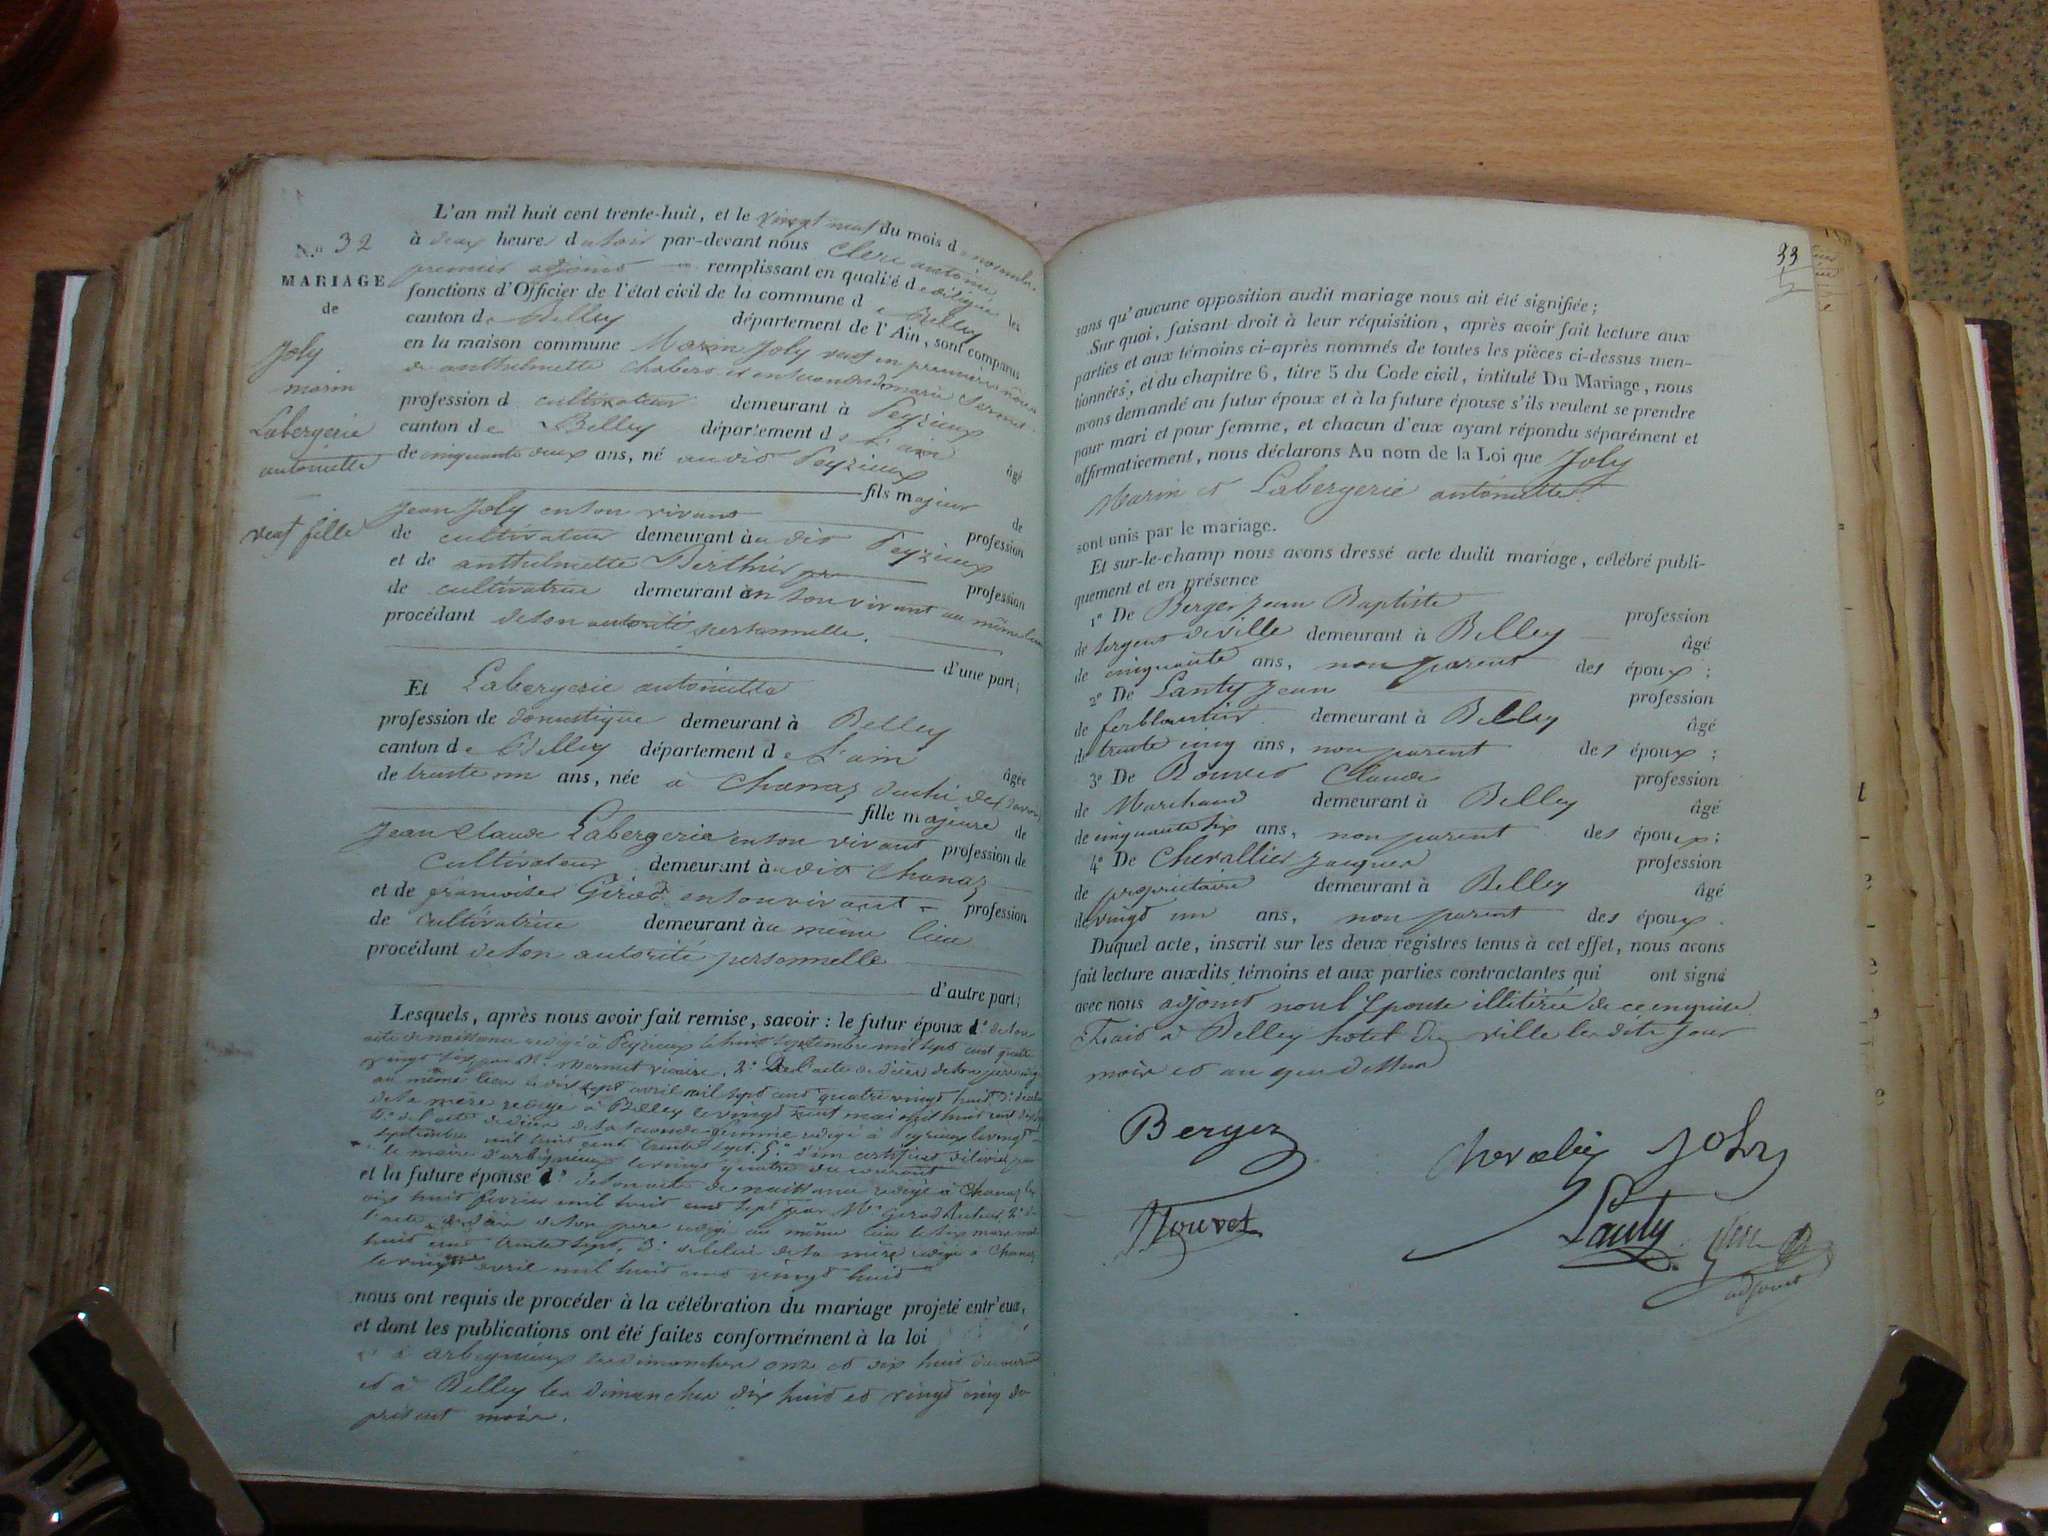 N.o 32
MARIAGE
de
Joly
marin
Labergerie
antoinette
veuf fille
L'an mil huit cent trente-huit, et le vingt neuf du mois de novembre
à deux heures du soir par-devant nous Clerc antoine
premier adjoint remplissant en qualité de délégué les
fonctions d'Officier de l'état civil de la commune de Belley
canton de Belley département de l'Ain, sont comparus
en la maison commune Marin Joly veuf en premières nôces
de anthelmette Chabert et en secondes de marie
profession de cultivateur demeurant à Peyzieux
canton de Belley département de L'ain âgé
de cinquante deux ans, né audit Peyzieux
fils majeur de
Jean Joly en son vivant profession
de cultivateur demeurant audit Peyzieux
et de anthelmette Berthier profession
de cultivatrice demeurant en son vivant au même lieu
procédant de son autorité personnelle.
d'une part;
Et Labergerie antoinette
profession de domestique demeurant à Belley
canton de Belley département de L'ain âgée
de trente un ans, née à Chanaz duché de Savoie
fille majeure de
Jean Claude Labergerie en son vivant profession de
Cultivateur demeurant audit Chanaz
et de françoise Girod en son vivant profession
de cultivatrice demeurant au même lieu
procédant de son autorité personnelle
d'autre part;
Lesquels, après nous avoir fait remise, savoir : le futur époux 1.o de son
acte de naissance rédigé à Peyzieux le huit septembre mil sept cent quatre
vingt six par Mr vicaire, 2.o De l'acte de décès de son père rédigé
au même lieu le dix sept avril mil sept cent quatre vingt huit, 3.o de celui
de sa mère rédigé à Belley le vingt huit mai mil huit cent
4.o de l'acte de décès de sa seconde femme rédigé à Peyzieux le vingt
septembre mil huit cent trente sept. 5.o d'un certificat délivré par
le maire d'arbignieux le vingt quatre du courant
et la future épouse 1.o de son acte de naissance rédigé à Chanaz le
dix huit février mil huit cent sept par Mr Girod Recteur, 2.o de
l'acte de décès de son père rédigé au même lieu le six mars mil
huit cent trente sept, 3.o de celui de sa mère rédigé à Chanaz
le vingt avril mil huit cent vingt huit
nous ont requis de procéder à la célébration du mariage projeté entr'eux,
et dont les publications ont été faites conformément à la loi
à arbignieux les dimanches onze et dix huit du courant
et à Belley les dimanches dix huit et vingt cinq du
présent mois.
33
sans qu'aucune opposition audit mariage nous ait été signifiée;
Sur quoi, faisant droit à leur réquisition, après avoir fait lecture aux
parties et aux témoins ci-après nommés de toutes les pièces ci-dessus men-
tionnées, et du chapitre 6, titre 5 du Code civil, intitulé Du Mariage, nous
avons demandé au futur époux et à la future épouse s'ils veulent se prendre
pour mari et pour femme, et chacun d'eux ayant répondu séparément et
affirmativement, nous déclarons Au nom de la Loi que Joly
Marin et Labergerie antoinette
sont unis par le mariage.
Et sur-le-champ nous avons dressé acte dudit mariage, célébré publi-
quement et en présence
1.o De Berger Jean Baptiste profession
de sergent de ville demeurant à Belley âgé
de cinquante ans, non parent des époux;
2.o De Lanty Jean profession
de ferblantier demeurant à Belley âgé
de trente cinq ans, non parent des époux;
3.o De Bouvet Claude profession
de Marchand demeurant à Belley âgé
de cinquante six ans, non parent des époux;
4.o De Chevallier Jacques profession
de propriétaire demeurant à Belley âgé
de vingt un ans, non parent des époux.
Duquel acte, inscrit sur les deux registres tenus à cet effet, nous avons
fait lecture auxdits témoins et aux parties contractantes qui ont signé
avec nous adjoint non l'Epouse illitérée de ce enquise
Fait à Belley hôtel de ville les dits jour
mois et an que dessus
Berger
Chevalier Joly
Bouvet
Lanty
adjoint